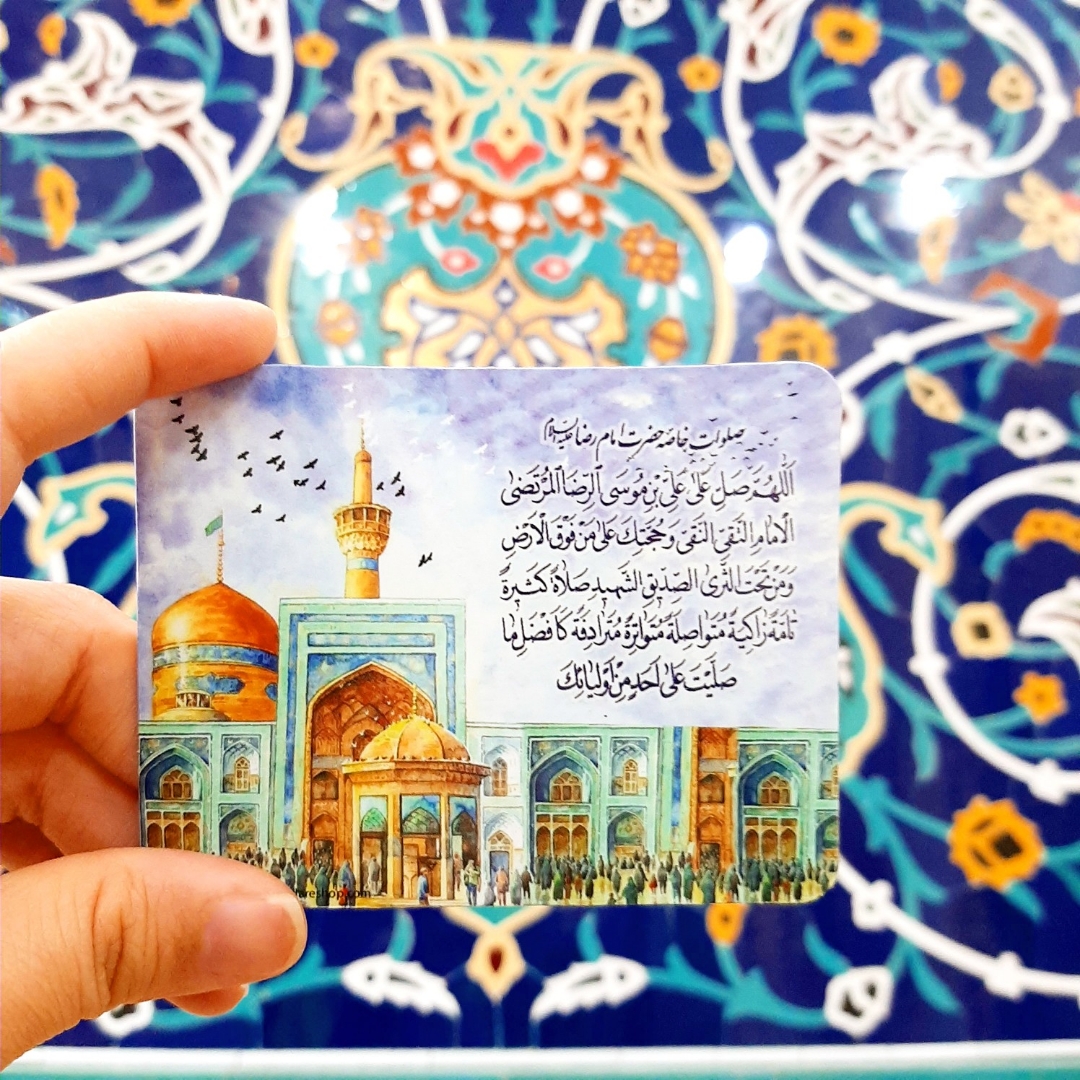 صلوات خاصه حضرت امام رضا علیه‌السلام
اَللّهُمَّ صَلِّ عَلی عَلِیِّ بْنِ مُوسَی الرِّضَا الْمُرْتَضی
الْاِمامِ التَّقِیِّ النَّقِیِّ وَ حُجَّتِكَ عَلی مَنْ فَوْقَ الْاَرْضِ
وَ مَنْ تَحْتَ الثَّری الصِّدّیقِ الشَّهیدِ صَلاةً كَثیرَةً
تامَّةً زاكِیَةً مُتَواصِلَةً مُتَواتِرَةً مُتَرادِفَةً كَاَفْضَلِ ما
صَلَّیْتَ عَلی اَحَدٍ مِنْ اَوْلِیائِكَ
hveshop.com